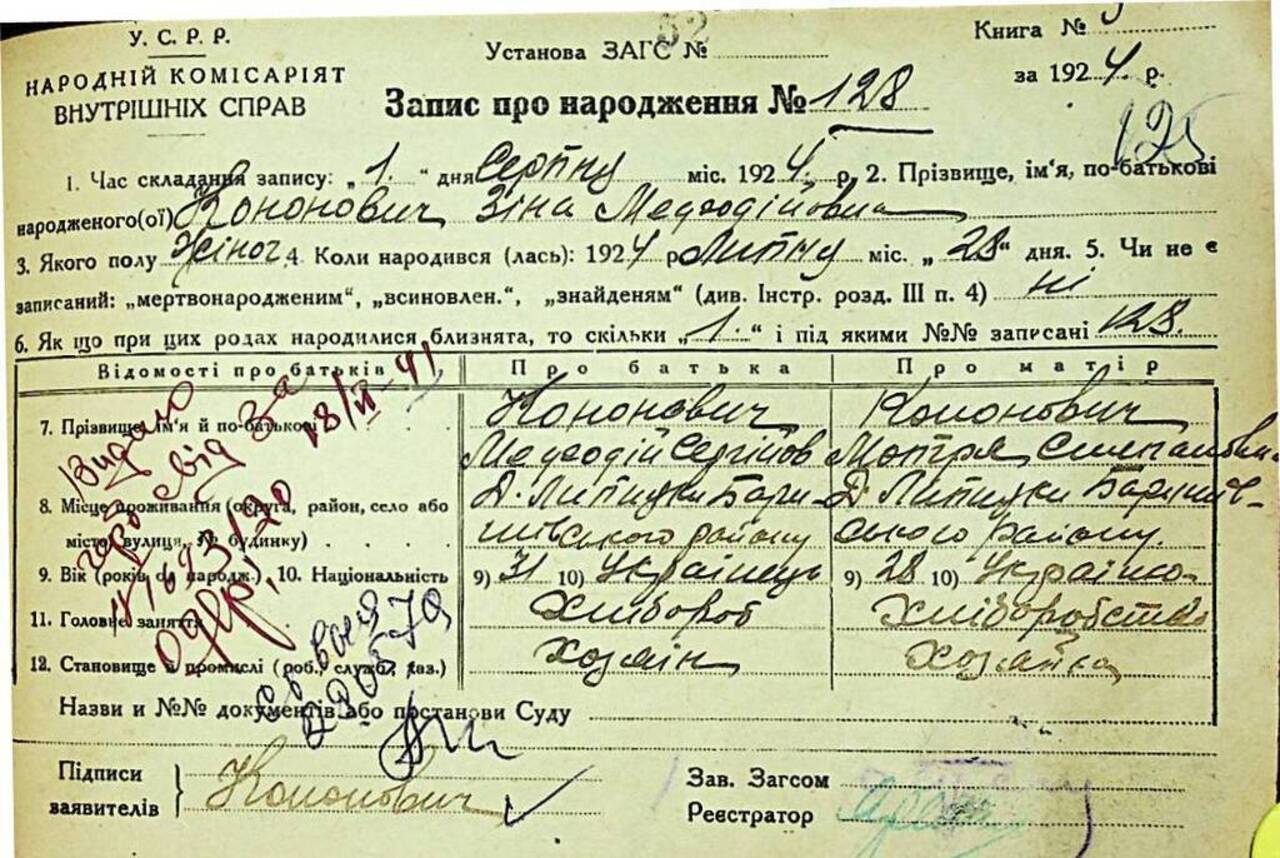 У. С. Р. Р.
НАРОДНІЙ КОМІСАРІЯТ
ВНУТРІШНІХ СПРАВ
Установа ЗАГС № 52
Книга №
за 1924 р.
Запис про народження № 128
125
1. Час складання запису: „1.“ дня Серпня міс. 1924. р. 2. Прізвище, ім'я, по-батькові
народженого(ої) Кононович Зіна Медфодійовна
3. Якого полу Жіноч. 4. Коли народився (лась): 1924 р. Липня міс. „28“ дня. 5. Чи не є
записаний: „мертвонародженим“, „всиновлен.“, „знайденям“ (див. Інстр. розд. III п. 4) ні
6. Як що при цих родах народилися близнята, то скільки „1.“ і під якими №№ записані 128.
Відомості про батьків Про батька Про матір
7. Прізвище, ім'я й по-батькові Кононович Кононович
Медфодій Сергійов Мотря Степановн
8. Місце проживання (округа, район, село або Д. Липицки Бари- Д. Липицки Баришів-
місто, вулиця, № будинку) шівського району ського району.
9. Вік (років до народж.), 10. Національність 9) 31 10) Українець 9) 28 10) Українка
11. Головне заняття Хлібороб Хліборобство
12. Становище в промислі (роб., служб., хаз.) Хозяїн Хозяйка
Видано
від За
18/II-41
Назви и №№ документів або постанови Суду
Підписи
заявителів Кононович
Зав. Загсом
Реєстратор